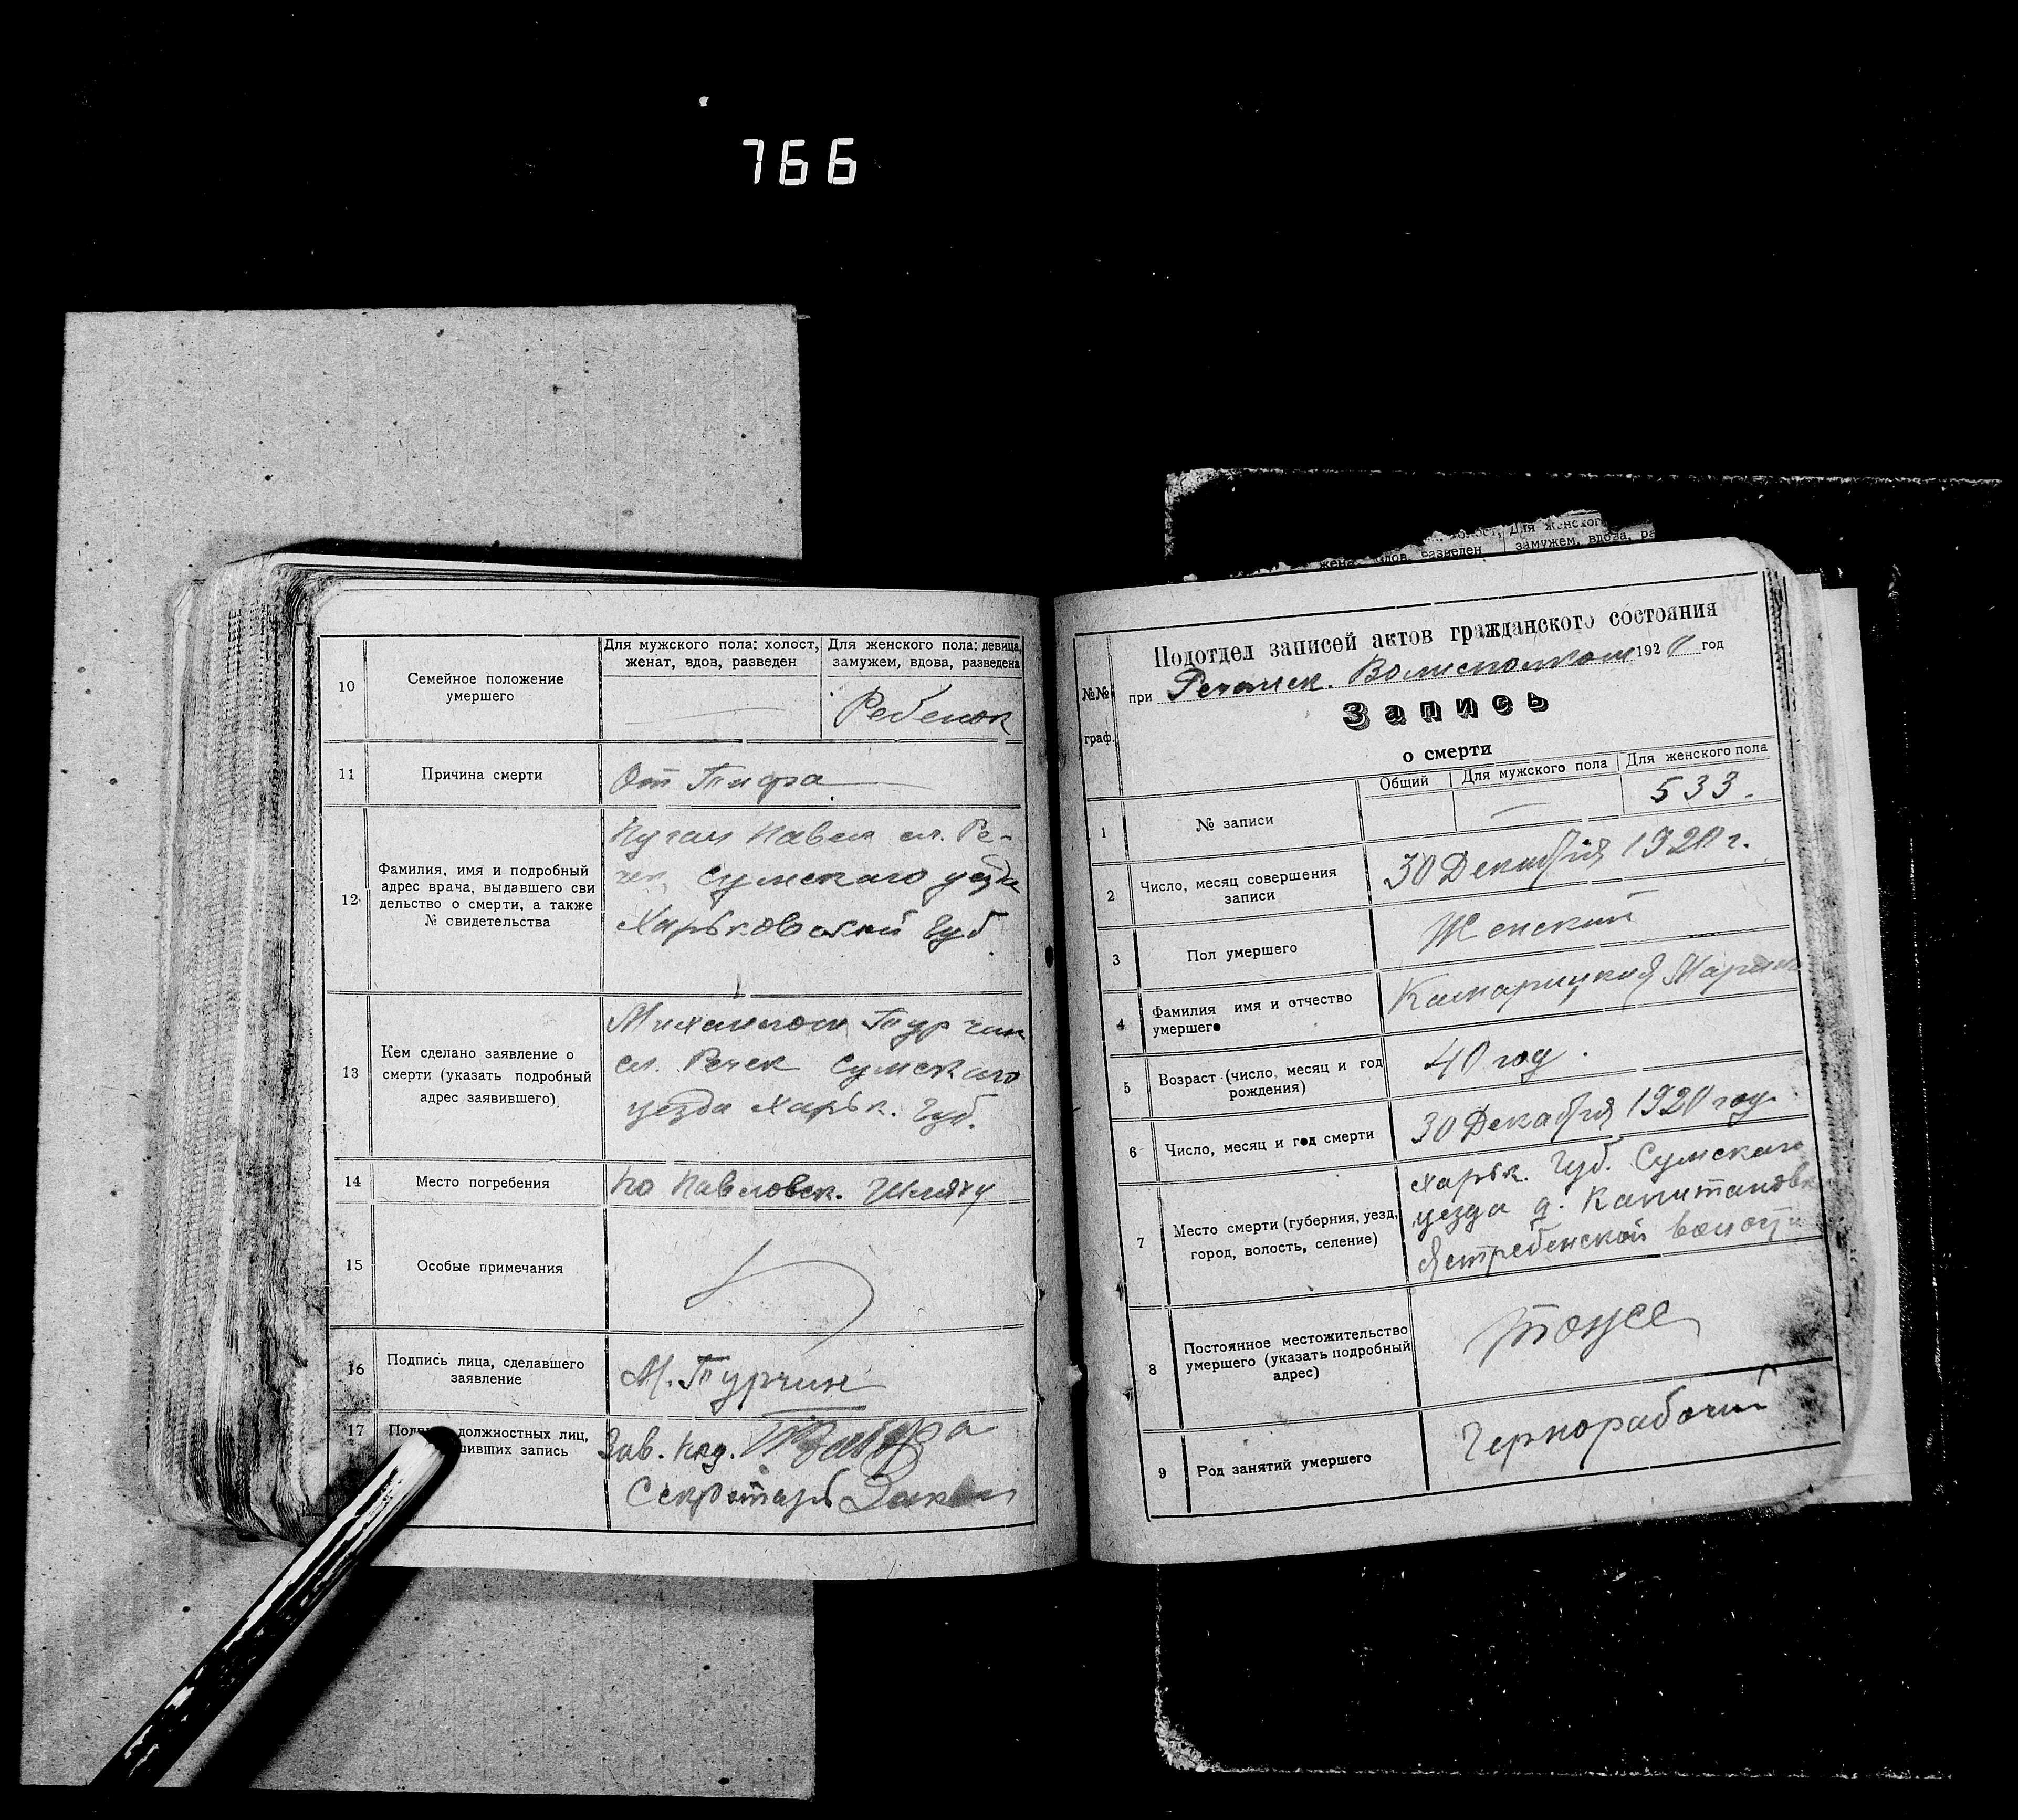 766
10
Семейное положение
умершего
Для мужского пола: холост,
женат, вдов, разведен
Для женского пола: девица,
замужем, вдова, разведена
Ребенок
11
Причина смерти
От Тифа
12
Фамилия, имя и подробный
адрес врача, выдавшего сви
дельство о смерти, а также
№ свидетельства
Павел сл. Ре-
чек, Сумского уезда
Харьковской Губ
13
Кем сделано заявление о
смерти (указать подробный
адрес заявившего)
Турчин
сл. Речек Сумского
уезда Харьк. Губ.
14
Место погребения
по Павловск. Шляху
15
Особые примечания
16
Подпись лица, сделавшего
заявление
М. Турчин
17
должностных лиц,
шивших запись
Зав. под.
Секретарь
жена, вдов, разведен
Для женского
замужем, вдова, ра
№№
граф.
Подотдел записей актов гражданского состояния
при Речанск. Волисполкоме 1920 год
Запись
о смерти
1
№ записи
Общий
Для мужского пола
Для женского пола
533.
2
Число, месяц совершения
записи
30 Декабря 1920 г.
3
Пол умершего
Женский
4
Фамилия имя и отчество
умершего
Камарицкая
5
Возраст (число, месяц и год
рождения)
40 год.
6
Число, месяц и год смерти
30 Декабря 1920 год
7
Место смерти (губерния, уезд,
город, волость, селение)
Харьк. Губ. Сумского
уезда д. Капитановка
Ястребенской волости
8
Постоянное местожительство
умершего (указать подробный
адрес)
тоже
9
Род занятий умершего
Чернорабочий